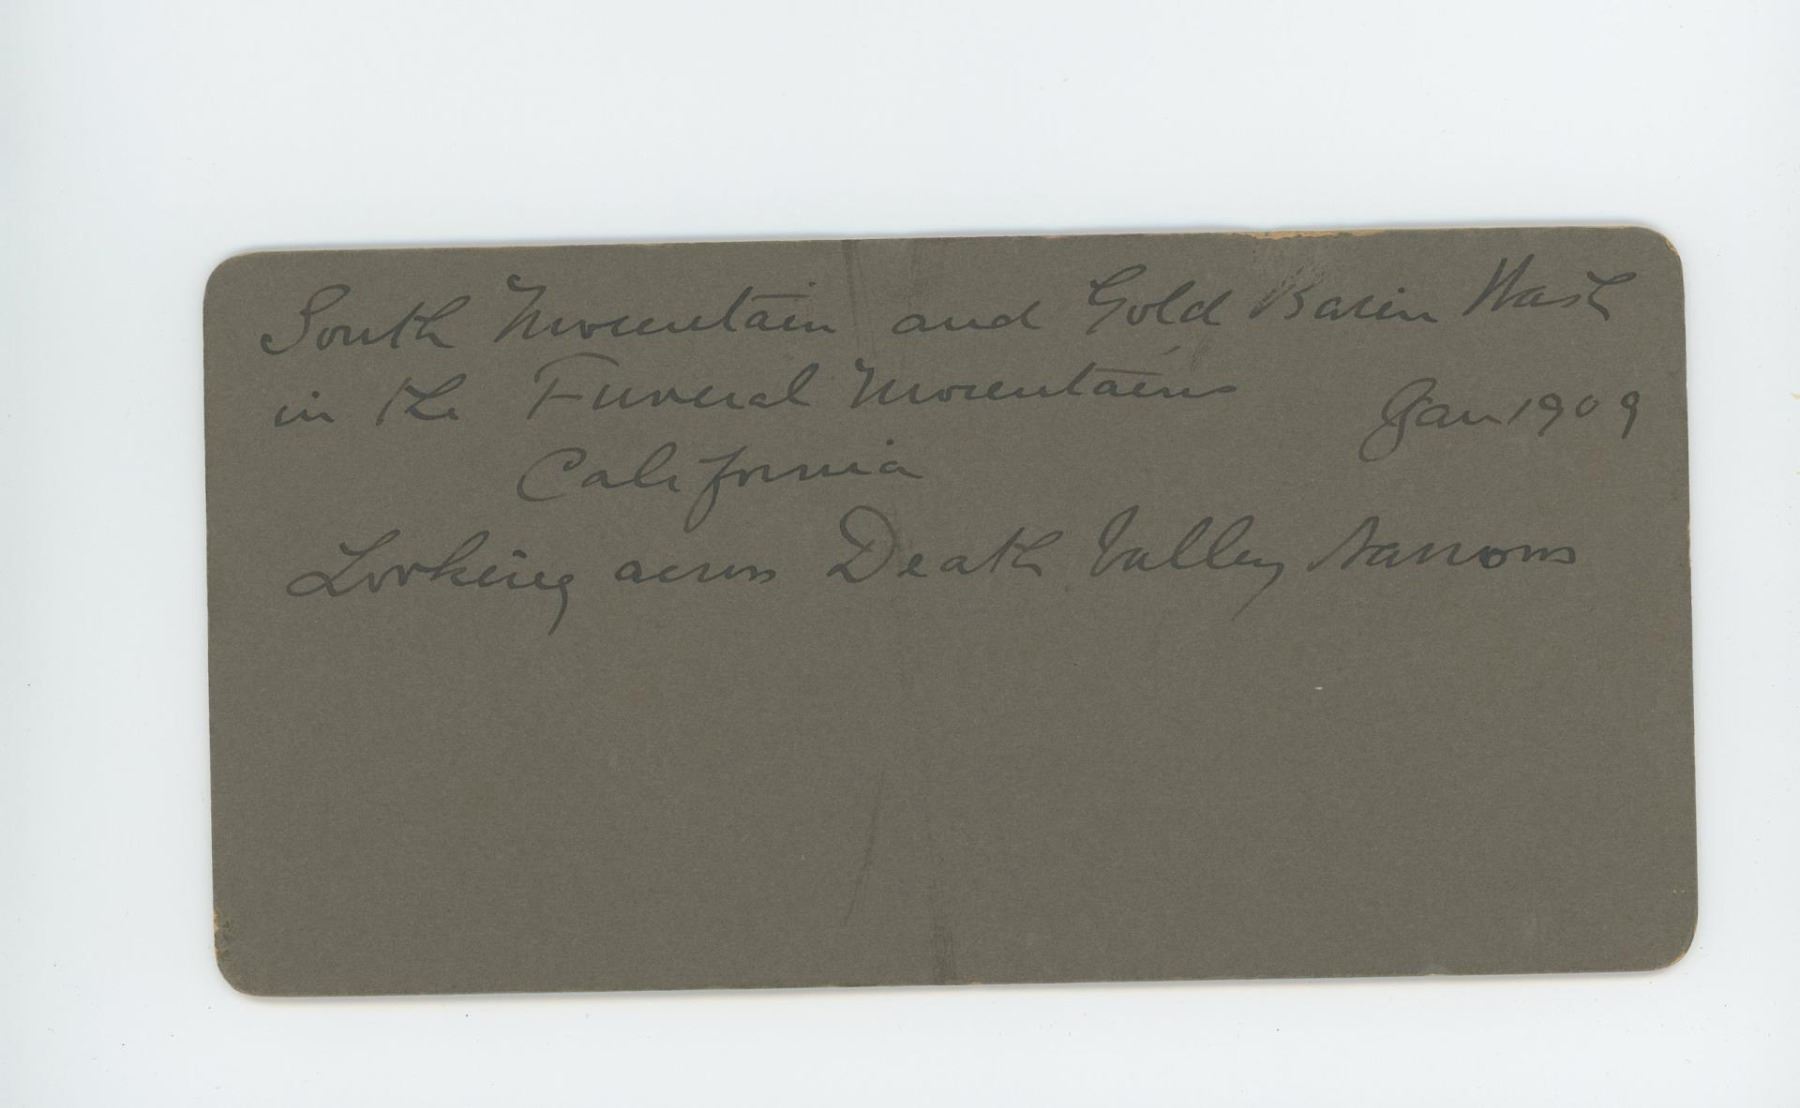 South Mountain and Gold Basin Wash
in the Funeral Mountains
Jan 1909
California
Looking across Death Valley Narrows